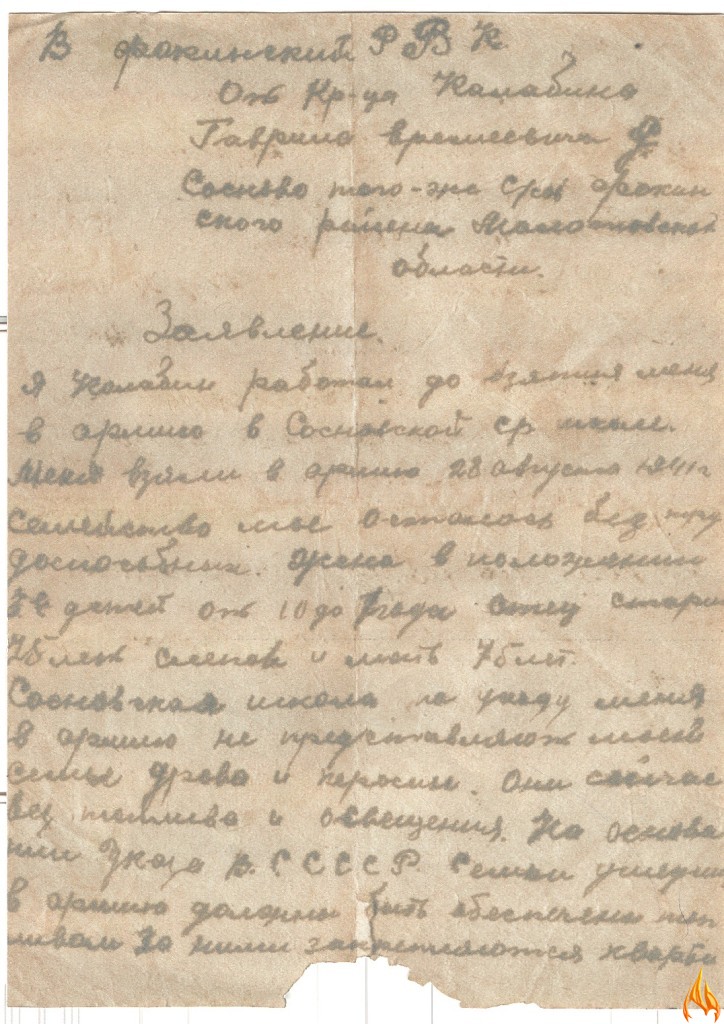 В Фокинский РВК.
От Кр-ца Калабина
Гаврила Времеевича
Сосново того-же Ср Фокин
ского района Молотовской
области.
Заявление.
Я Калабин работал до взятия меня
в армию в Сосновской ср школе.
Меня взяли в армию 28 августа 1941 г
Семейство мое осталось без труд
доспособных. Жена в положении
детей от 10 до 1 года отец стари
75 лет слепой и мать 75 лет.
Сосновская школа по уходу меня
в армию не представляют моей
семье дрова и керосин. Они сейчас
без топлива и освещения. На основа
нии Указа В.С СССР. Семьи ушедши
в армию должны быть обеспечены топ
ливом за ними закрепляются кварти